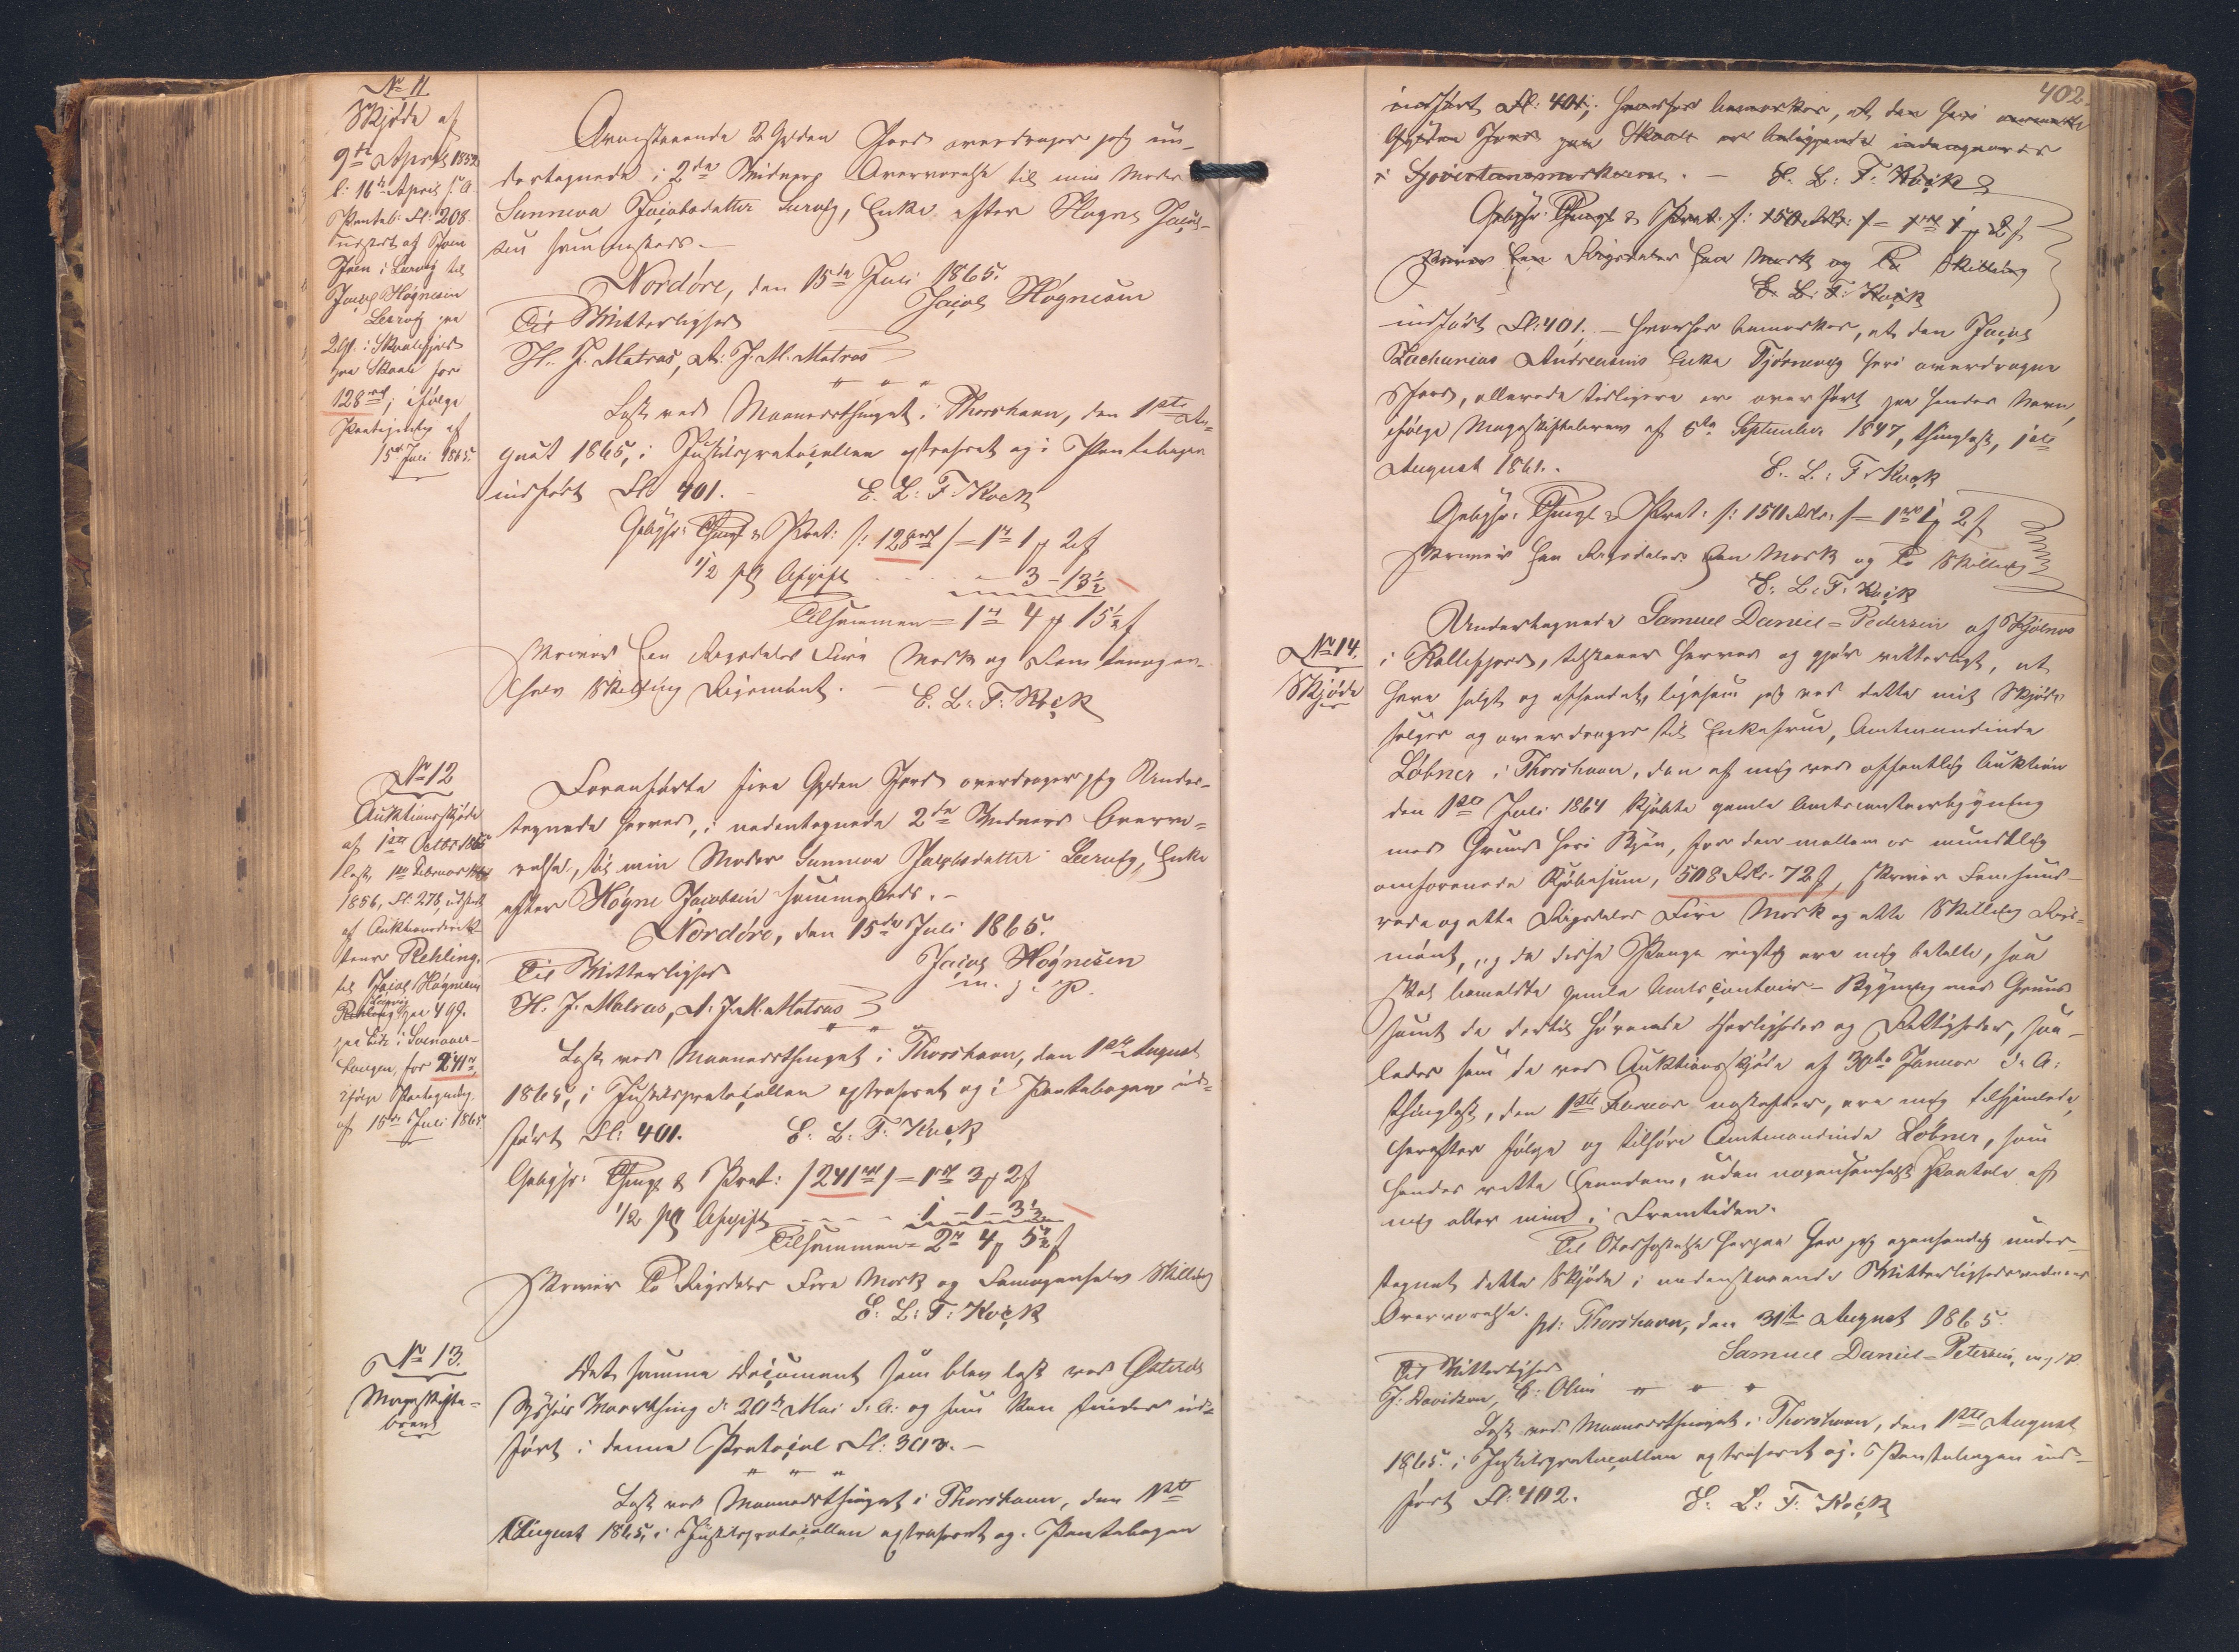 No 11
Skjøde af
9de April 1852
l: 16de April s. A.
Panteb: Fol: 208.
udstedt af
Joen i Lervig til
Jacob Høgnesen
Lervig paa
2 Gl. i
paa Skaale for
128 rd; ifølge
Paategning af
15de Juli 1865.
Ovenstaaende 2 Gylden Jord overdrager jeg un-
dertegnede i 2de Vidners Overværelse til min Moder
Sunneva Jacobsdatter Lervig, Enke efter Høgne Jacob-
sen sammesteds.
Nordøre, den 15de Juli 1865.
Jacob Høgnesen
Til Vitterlighed
H. J. Matras, D. J. M. Matras
Læst ved Maanedsthinget i Thorshavn, den 1ste Au-
gust 1865, i Justitsprotocollen extraheret og i Pantebogen
indført Fol 401.
E. L: F: Kock
Gebyhr: Thingl & Prot: /: 128 rd / = 1 rd 1 # 2 s
1/2 pC Afgift - 3 - 13 1/2
Tilsammen = 1 rd 4 # 15 1/2 s
skriver Een Rigsdaler Fire Mark og Femtenogen-
halv Skilling Rigsmønt. -
E. L: F: Kock
No 12
Auktionsskjøde
af 1ste Octbr 1855
læst, 1ste Februar
1856, Fol: 278, udstedt
af Auktionsdirek
teur Rehling
til Jacob Høgnesen
Lervig
Rehling paa 4 Gl.
paa Eide i
for 241 rd,
ifølge Paategning
af 15de Juli 1865
Foranførte fire Gylden Jord overdrager jeg Under-
tegnede herved, i nedentegnede 2de Vidners Overvæ-
relse, til min Moder Sunneva Jacobsdatter Lervig, Enke
efter Høgne Jacobsen sammesteds. -
Nordøre, den 15de Juli 1865.
Jacob Høgnesen
m. j. P.
Til Vitterlighed
H. J. Matras, D. J. M. Matras
Læst ved Maanedsthinget i Thorshavn, den 1ste August
1865, i Justitsprotocollen extraheret og i Pantebogen ind-
ført Fol: 401.
E. L: F: Kock
Gebyhr: Thingl & Prot: / 241 rd / = 1 rd 3 # 2 s
1/2 pC Afgift - - - - 1 - 1 - 3 1/2
Tilsammen = 2 rd 4 # 5 1/2 s
skriver To Rigsdaler Fire Mark og Femogenhalv Skilling
E. L: F: Kock
No 13.
Mageskifte-
brev
Det samme Document som blev læst ved Østerø
Syssels Vaarthing d. 20de Mai d. A: og som kan findes ind-
ført i denne Protocol Fol: 393. -
Læst ved Maanedsthinget i Thorshavn, den 1ste
August 1865, i Justitsprotocollen extraheret og i Pantebogen
402.
indført Fol: 401; hvorhos bemærkes, at den heri ommeldte
Gylden Jord paa Skaale er beliggende indengaards
i
E. L: F: Kock
Gebyhr: Thingl & Prot: /: 150 Rdr: / = 1 rd 1 # 2 s
skriver Een Rigsdaler Een Mark og To Skilling
E. L: F: Kock
indført Fol: 401; - hvorhos bemærkes, at den Jacob
Zacharias Andreasens Enke Tjørnevig heri overdragne
Jord, allerede tidligere er overført paa hendes Navn,
ifølge Mageskiftebrev af 5te September 1847, thinglæst, 1ste
August 1861.
E. L: F: Kock
Gebyhr: Thingl & Prot: /: 150 Rdr: / = 1 rd 1 # 2 s
skriver Een Rigsdaler Een Mark og To Skilling
E. L. F. Kock
No 14.
Skjøde
Undertegnede Samuel Daniel Petersen af
i Kollefjord, tilstaaer herved og gjør vitterligt, at
have solgt og afhændet, ligesom jeg ved dette mit Skjøde
sælger og overdrager til Enkefrue, Amtmandinde
Løbner i Thorshavn, den af mig ved offentlig Auktion
den 1ste Juli 1864 kjøbte gamle Amtscontoirbygning
med Grund her i Byen, for den mellem os mundtlig
omforenede Kjøbesum, 508 Rdr. 72 s, skriver Femhund-
rede og otte Rigsdaler Fire Mark og otte Skilling Rigs-
mønt, og da disse Penge rigtig ere mig betalte, saa
skal bemeldte gamle Amtscontoir-Bygning med Grund
samt de dertil hørende Herligheder og Rettigheder, saa-
ledes som de ved Auktionsskjøde af 30te Januar d. A:
thinglæst, den 1ste Februar næstefter, ere mig tilhjemlede,
herefter følge og tilhøre Amtmandinde Løbner, som
hendes rette Eiendom, uden nogensomhelst Paatale af
mig eller mine i Fremtiden.
Til Stadfæstelse herpaa har jeg egenhændig under-
tegnet dette Skjøde i nedenstaaende Vitterlighedsvidners
Overværelse. pt: Thorshavn, den 31te August 1865.
Samuel Daniel Petersen, m. j. P.
Til Vitterlighed
J: Davidsen, E: Olsen
Læst ved Maanedsthinget i Thorshavn, den 1ste August
1865. i Justitsprotocollen extraheret og i Pantebogen ind-
ført Fol: 402.
E. L: F: Kock